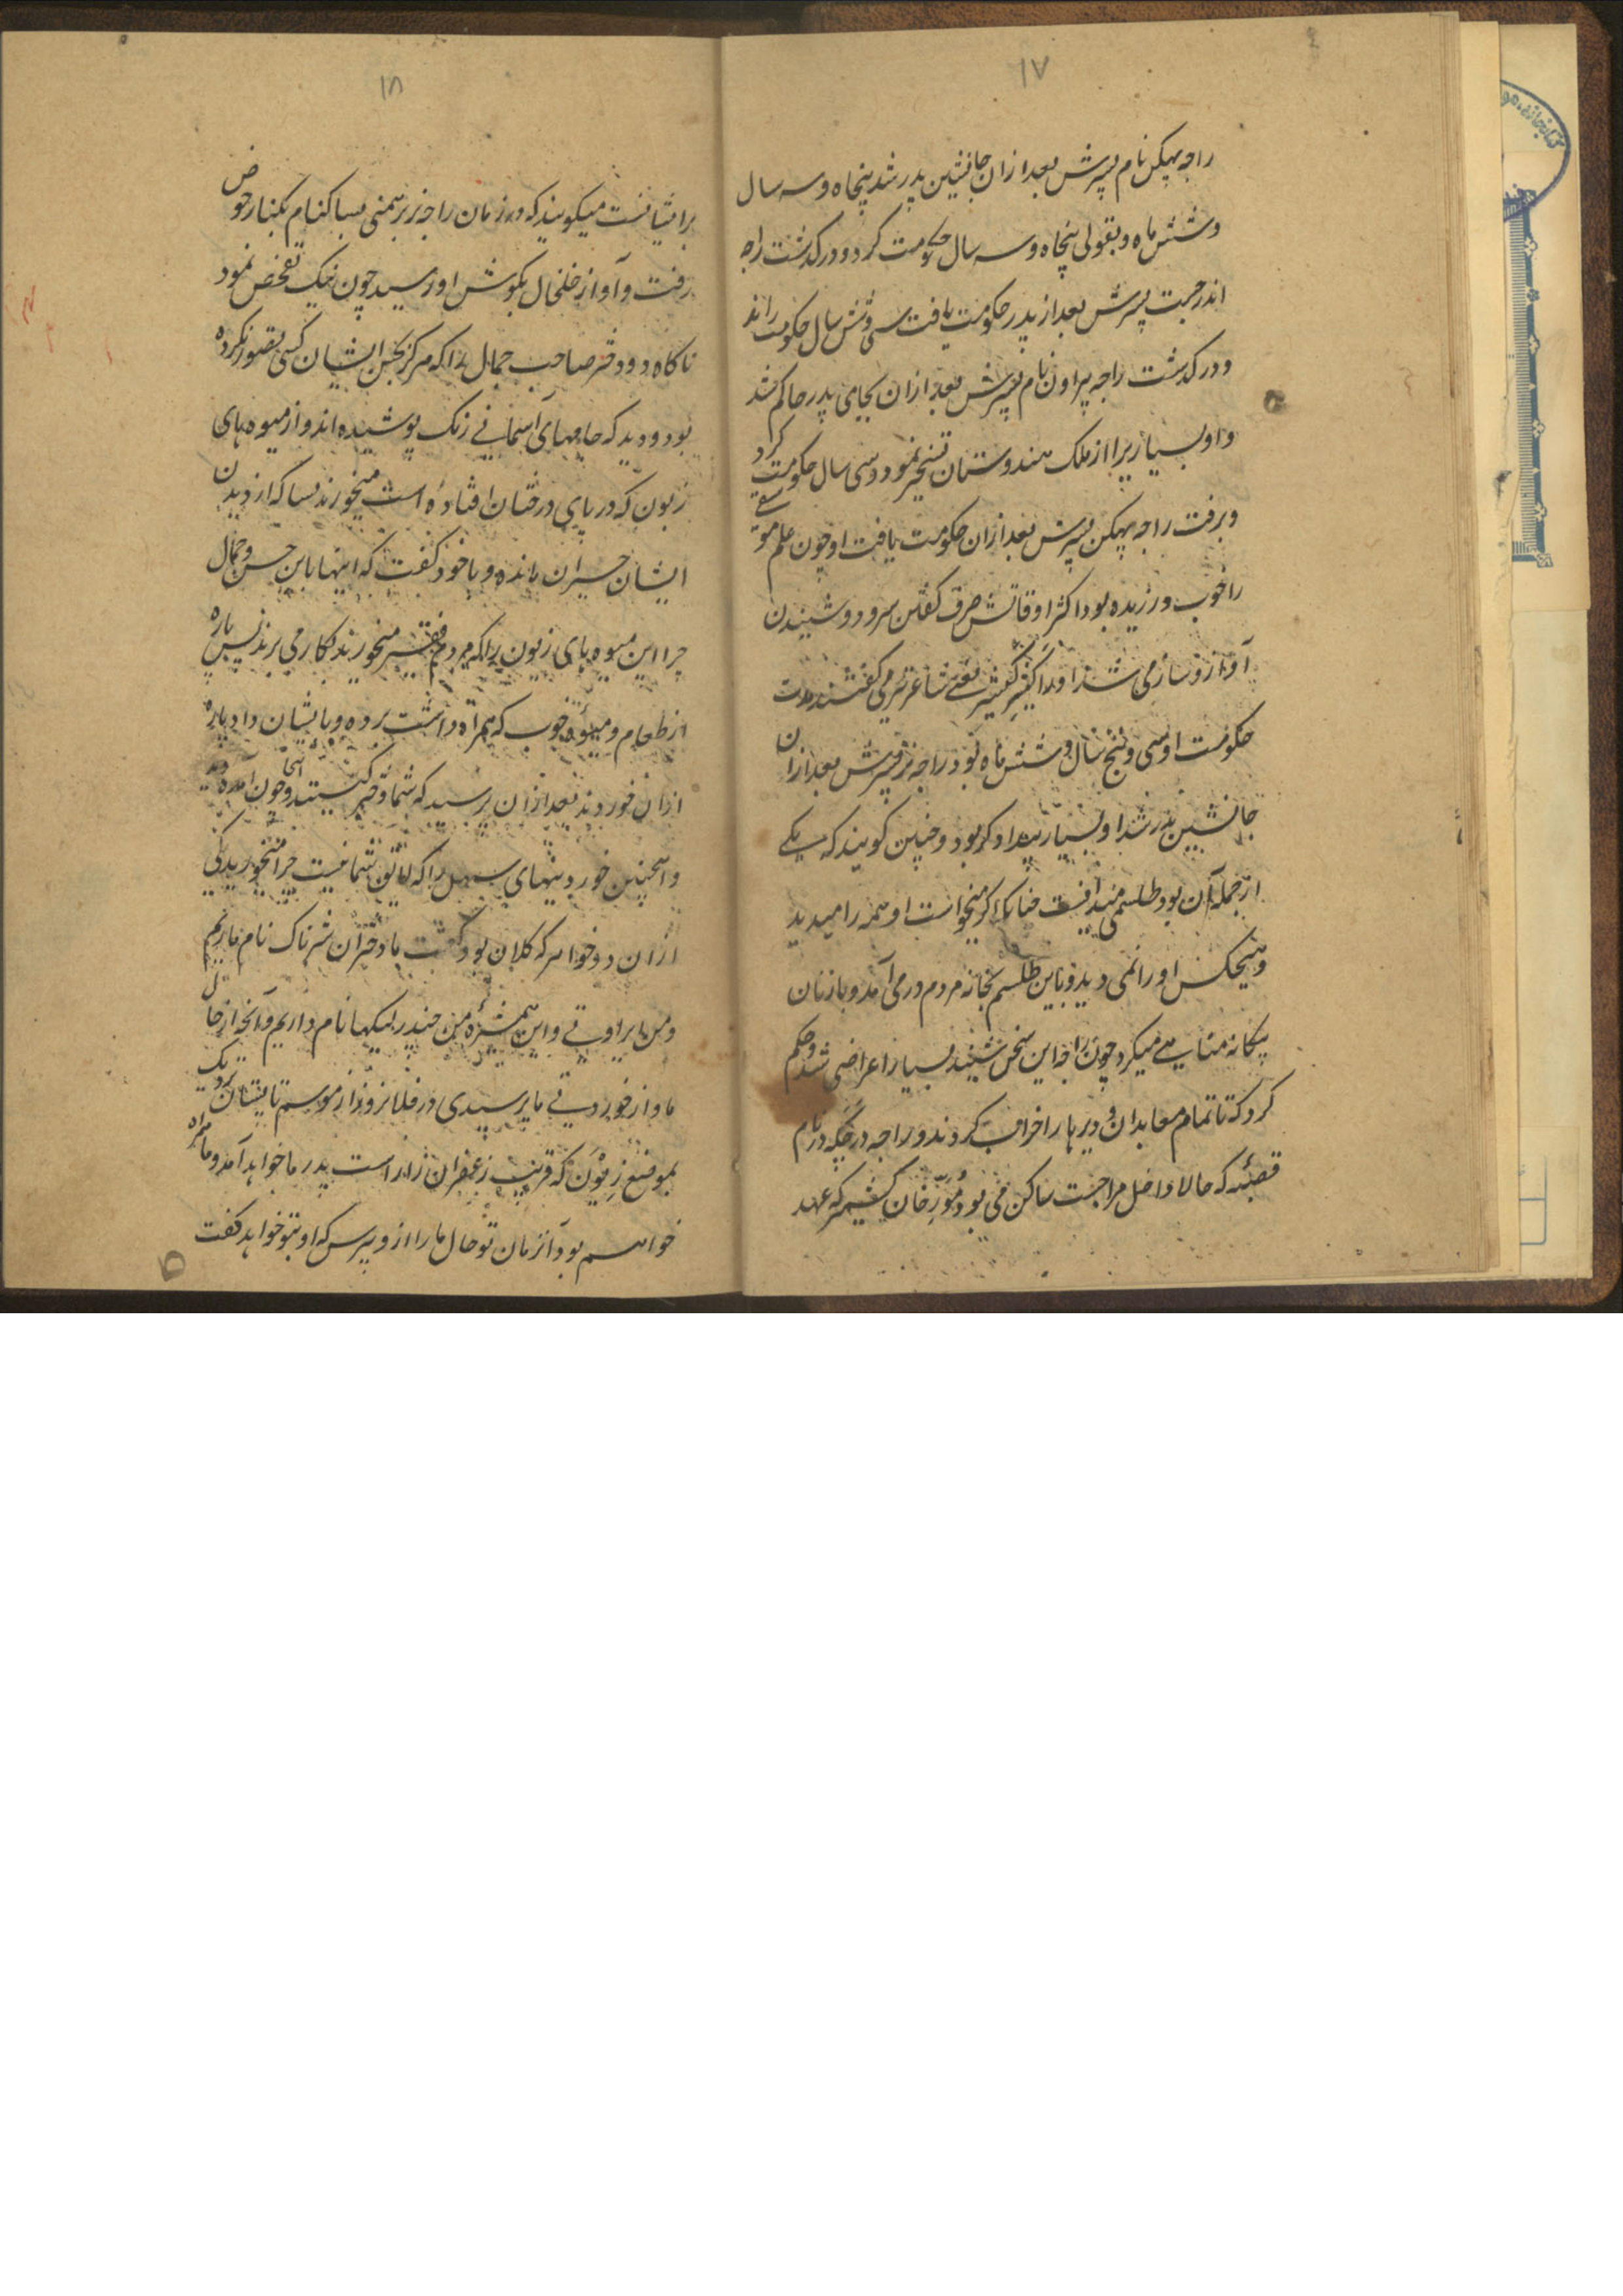 ۱۷
راجه بهیکن نام پسرش بعد ازان جانشین پدر شد پنجاه و سه سال
و شش ماه و بقولی پنجاه و سه سال حکومت کرد و درکذشت راجه
اندرجیت پسرش بعد از پدر حکومت یافت سی و شش سال حکومت راند
و درکذشت راجه پراون نام پسرش بعد ازان بجای پدر حاکم شد
و او بسیار یرا از ملک هندوستان تسخیر نمود و سی سال حکومت کرد
و برفت راجه بهیکن پسرش بعد ازان حکومت یافت او چون علم موسقی
را خوب ورزیده بود اکثر اوقاتش صرف کفتن سرود و شنیدن
آواز و ساز می شد او را کنیر یعنی شاعر نر می کفتند مدت
حکومت او سی و پنج سال و شش ماه بود راجه نر پسرش بعد ازان
جانشین پدر شد او بسیار بیدادکر بود و چنین کویند که یکی
از جمله آن بود طلسمی میدانست چنانکه اکر میخواست او همه را میدید
و هیچکس او را نمی دید و باین طلسم بخانه مردم در می آمد و با زنان
بیکانه مناسبی میکرد چون راجه این سخن شنید بسیار اعراضی شد و حکم
کرد که تا تمام معابدان و دیر ها را خراب کردند و راجه در چکدر نام
قصبه که حالا داخل مراجست ساکن می بود مورخان کشمیر که عهد
۱۸
برایشانست میکویند که در زمان راجه نر برهمنی بساکنام بکنار حوض
رفت و آواز خلخال بکوش او رسید چون نیک تفحص نمود
ناکاه دو دختر صاحب جمال را که هرکز بحسن ایشان کسی تصور نکرده
بود و دید که جامهای آسمانی رنک پوشیده اند و از میوه های
زبون که در پای درختان افتاده است میخورند بسا که از دیدن
ایشان حیران مانده و با خود کفت که اینها باین حسن و جمال
چرا این میوه های زبون را که مردم فقیر میخورند بکار می برند پس پاره
از طعام و میوه خوب که همراه داشت برده و بایشان داد پاره
ازان خوردند بعد ازان پرسید که شما دختر کیستید و چون اینجا آمده اید
و اینچنین خوردنیهای سهل را که لائق شما نیست چرا میخورید یکی
ازان دو خواهر که کلان بود کفت ما دختران شرناک نام ماریم
و من ایراوتی و این همشیره من چندر لیکها نام داریم و آنچه از حال
ما و از خوردنی ما پرسیدی در فلانروز از موسم تابستان نزدیک
بموضع زیون که قریب زعفران زار است پدر ما خواهد آمد و ما همراه
خواهیم بود آنزمان تو حال ما را از و پرس که او بتو خواهد کفت